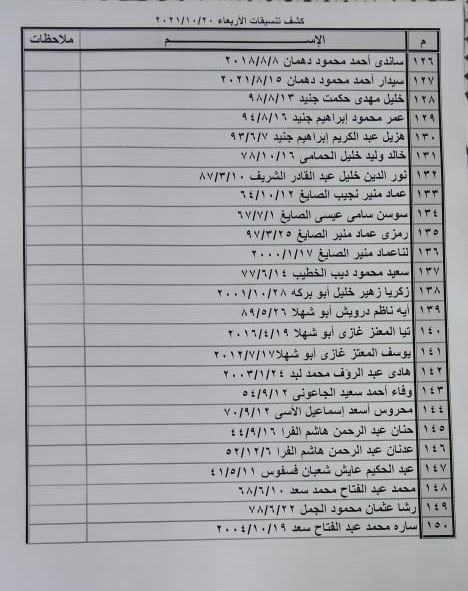 كشف تنسيقات الأربعاء ٢٠٢١/١٠/٢٠
م الإســـم ملاحظات
١٢٦ ساندى أحمد محمود دهمان ٢٠١٨/٨/٨
١٢٧ سيدار أحمد محمود دهمان ٢٠٢١/٨/١٥
١٢٨ خليل مهدى حكمت جنيد ٩٨/٨/١٣
١٢٩ عمر محمود إبراهيم جنيد ٩٤/٨/١٦
١٣٠ هزيل عبد الكريم إبراهيم جنيد ٩٣/٦/٧
١٣١ خالد وليد خليل الحمامى ٧٨/١٠/١٦
١٣٢ نور الدين خليل عبد القادر الشريف ٨٧/٣/١٠
١٣٣ عماد منير نجيب الصايغ ٦٤/١٠/١٢
١٣٤ سوسن سامى عيسى الصايغ ٦٧/٧/١
١٣٥ رمزى عماد منير الصايغ ٩٧/٣/٢٥
١٣٦ لناعماد منير الصايغ ٢٠٠٠/١/١٧
١٣٧ سعيد محمود ديب الخطيب ٧٧/٦/١٤
١٣٨ زكريا زهير خليل أبو بركه ٢٠٠١/١٠/٢٨
١٣٩ أيه ناظم درويش أبو شهلا ٨٩/٥/٢٦
١٤٠ تيا المعتز غازى أبو شهلا ٢٠١٦/٤/١٩
١٤١ يوسف المعتز غازى أبو شهلا٢٠١٢/٧/١٧
١٤٢ هادى عبد الرؤف محمد لبد ٢٠٠٣/١/٢٤
١٤٣ وفاء أحمد سعيد الجاعونى ٥٤/٩/١٢
١٤٤ محروس أسعد إسماعيل الأسى ٧٠/٩/١٢
١٤٥ حنان عبد الرحمن هاشم الفرا ٤٤/٩/١٦
١٤٦ عدنان عبد الرحمن هاشم الفرا ٥٢/١٢/٦
١٤٧ عبد الحكيم عايش شعبان فسفوس ٤١/٥/١١
١٤٨ محمد عبد الفتاح محمد سعد ٦٨/٦/١٠
١٤٩ رشا عثمان محمود الجمل ٧٨/٦/٢٢
١٥٠ ساره محمد عبد الفتاح سعد ٢٠٠٤/١٠/١٩